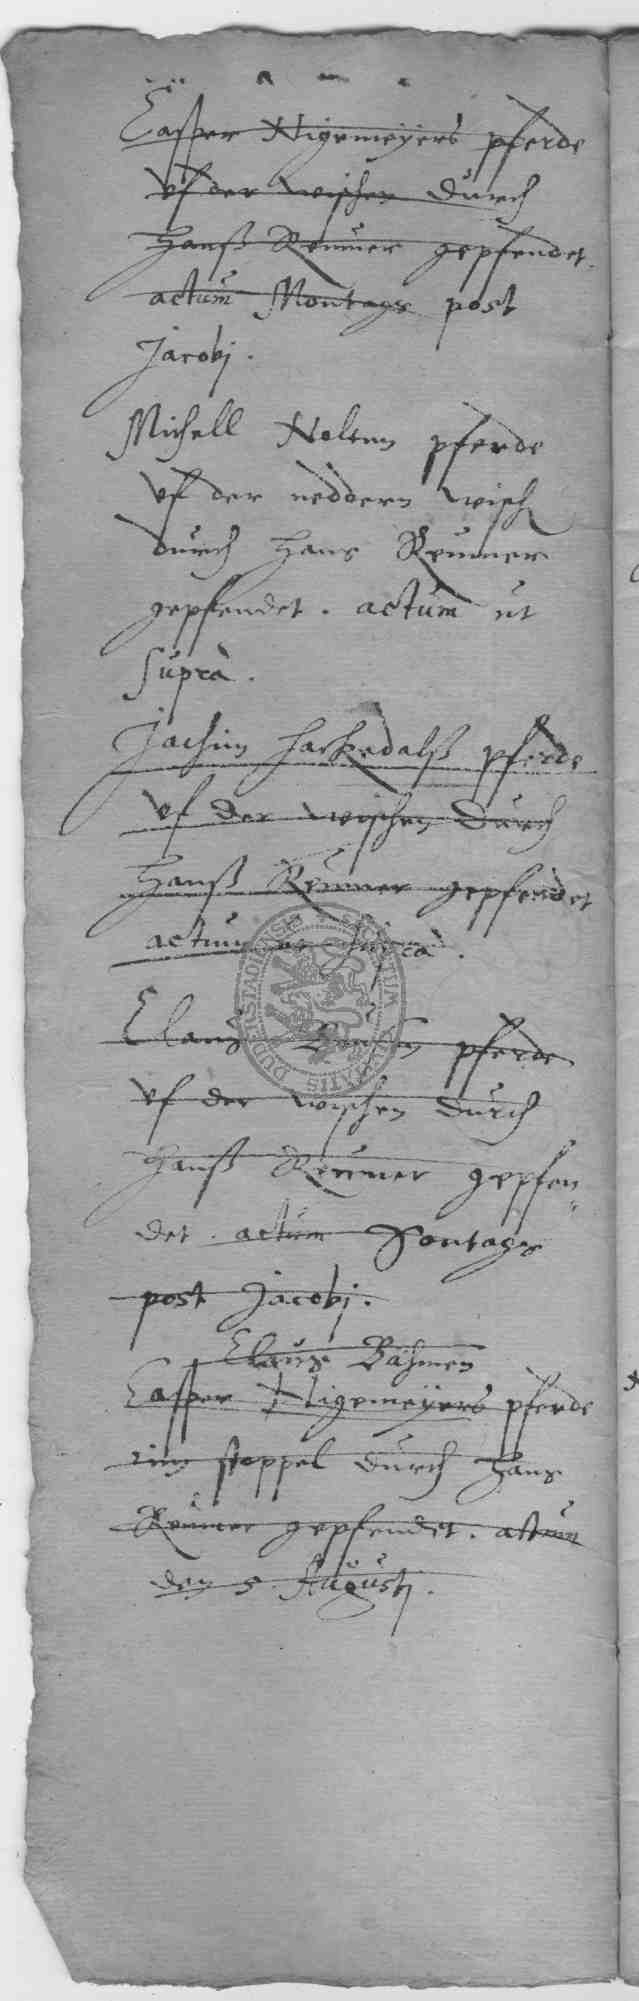 Casper Nigemeyers pferde
uf der wischen durch
Hanß Reumer gepfendet.
actum Montags post
Jacobj.
Michell Nolten pferde
uf der neddern wisch
durch Hans Reumer
gepfendet. actum ut
supra.
Jachim Harkedalß pferde
uf der wischen durch
Hanß Reumer gepfendet
actum ut supra.
Claus pferde
uf der wischen durch
Hanß Reumer gepfen„
det. actum Sontags
post Jacobj.
Claus Bähmen
Casper Nigemeyers pferde
im stoppel durch Hans
Reumer gepfendet. actum
den 5 Augustj.
SIGILLUM CIVITATIS DUDERSTADIENSIS